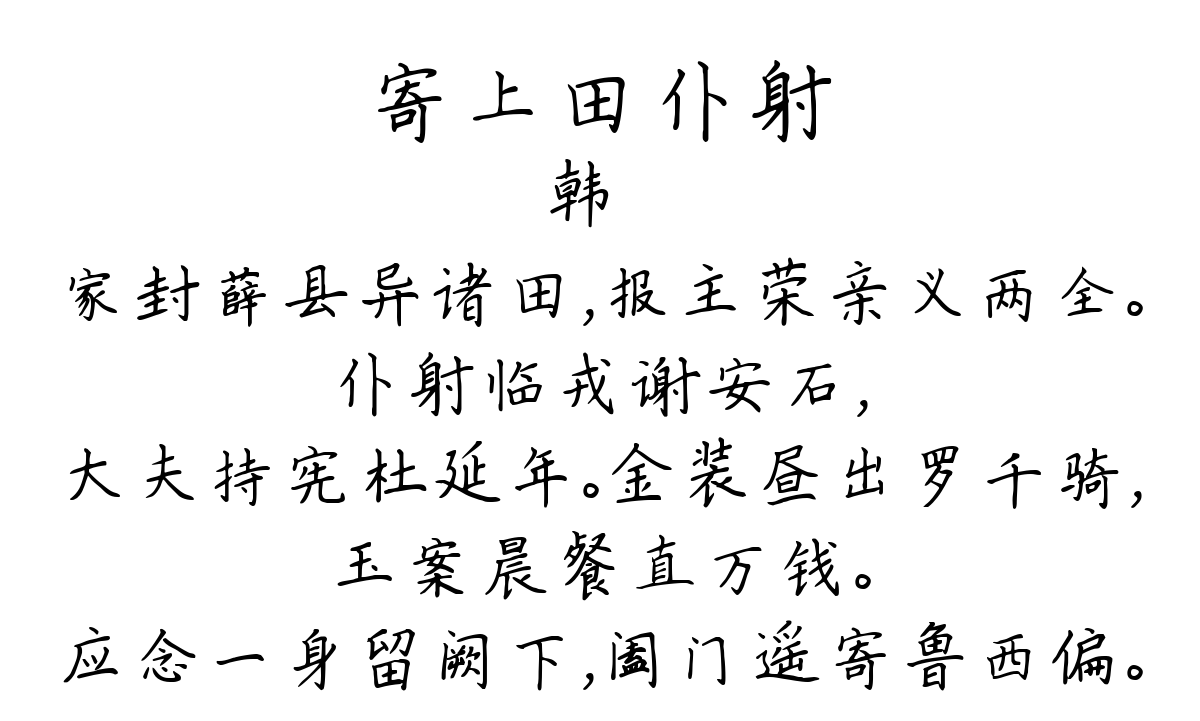 寄上田仆射
韩
家封薛县异诸田,报主荣亲义两全。
仆射临戎谢安石,
大夫持宪杜延年。金装昼出罗千骑,
玉案晨餐直万钱。
应念一身留阙下,阖门遥寄鲁西偏。